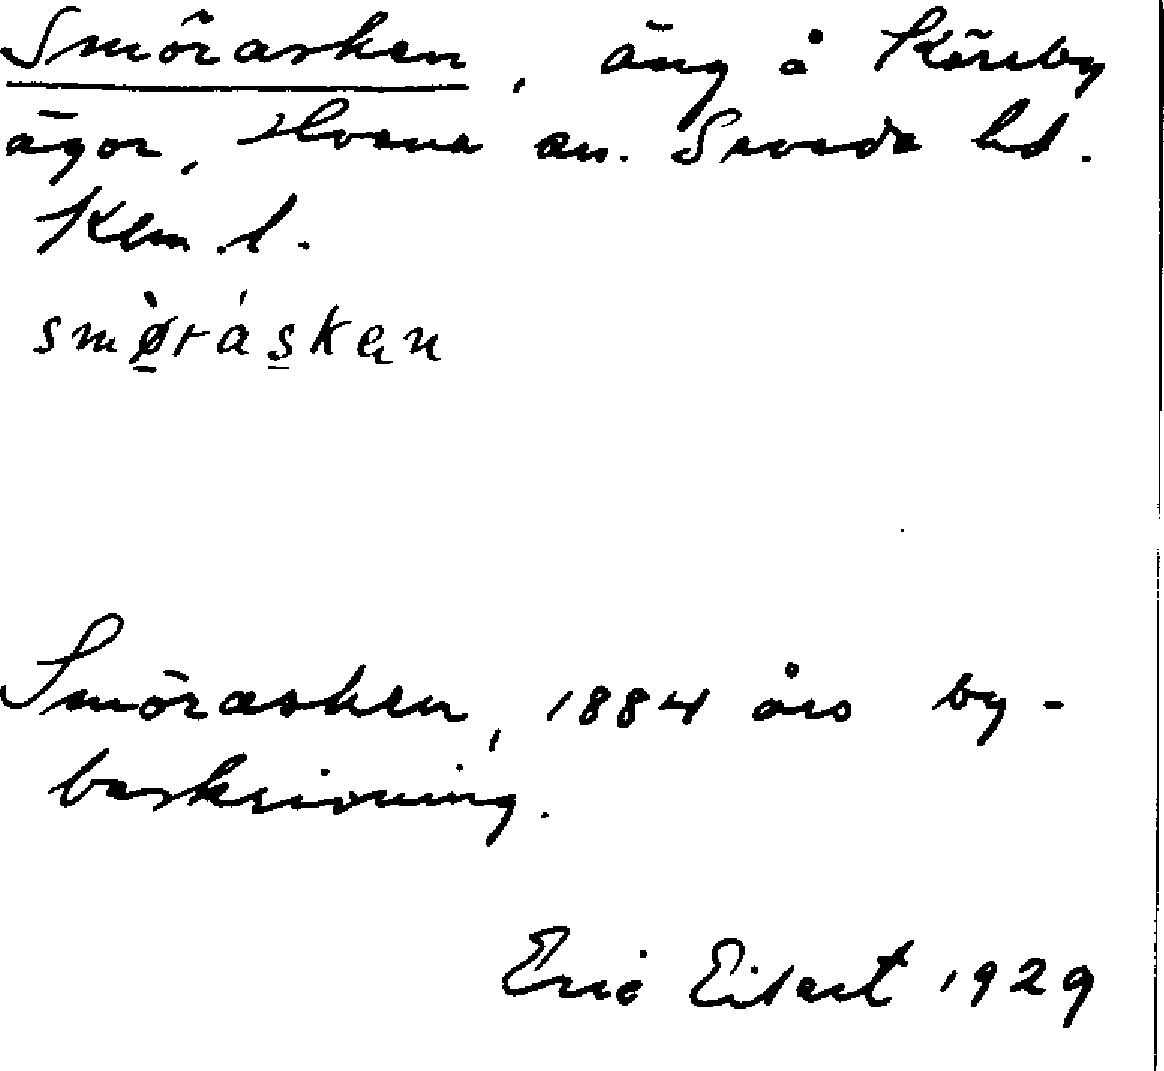 Smörasken, äng å Köreby
ägor, Hvena sn. Sevede hd.
Klm. l.
smø̀ráskan
Smörasken, 1884 års by-
beskrivning.
Eric Eibert 1929